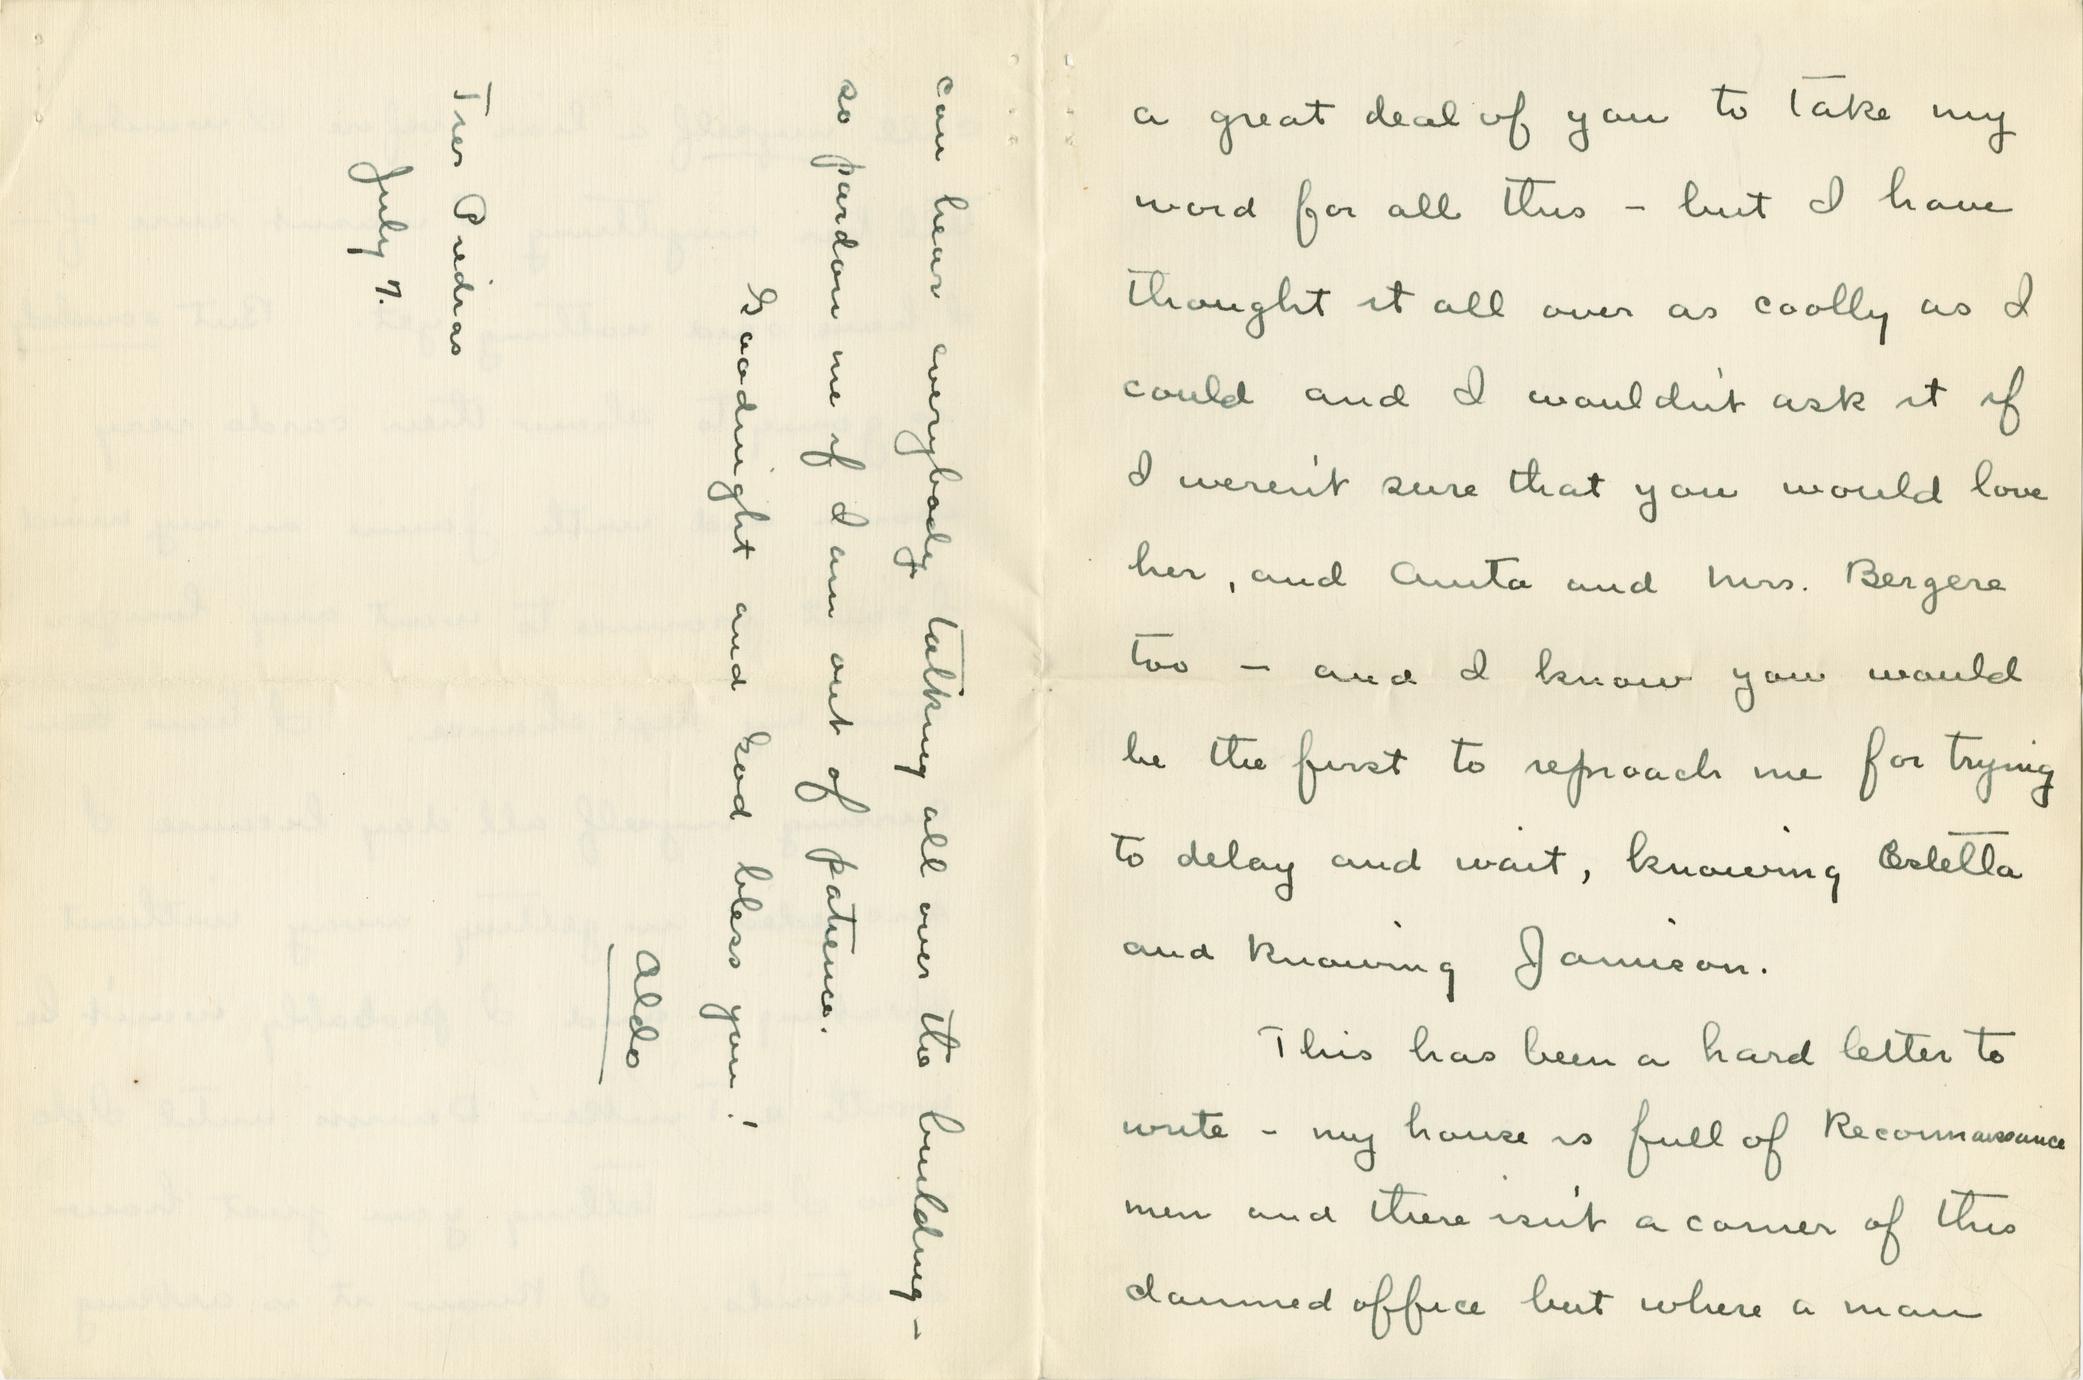 a great deal of you to take my
word for all this - but I have
thought it all over as coolly as I
could and I wouldn't ask it if
I weren't sure that you would love
her, and Anita and Mrs. Bergere
too - and I know you would
be the first to reproach me for trying
to delay and wait, knowing Estella
and knowing Jamison.
This has been a hard letter to
write - my house is full of Reconnaissance
men and there isn't a corner of this
damned office but where a man
can hear everybody talking all over the building -
so pardon me if I am out of patience.
Goodnight and God bless you!
Aldo
Tres Piedras
July 7.